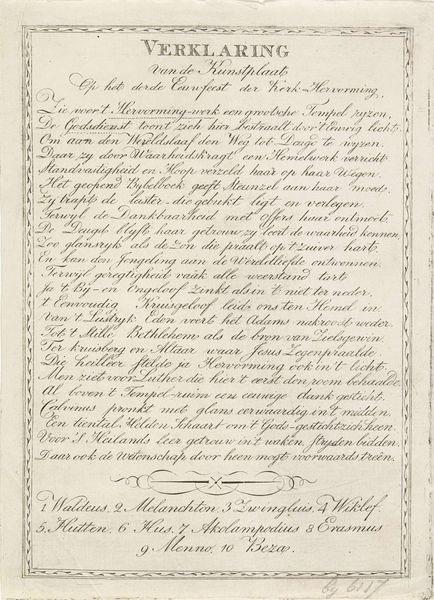 VERKLARING
van de Kunstplaat
Op het derde Eeuwfeest der Kerk-Hervorming,
Zie voor't Hervorming-werk een grootsche Tempel ryzen,
De Godsdienst toont zich hier bestraalt door t Euwig licht
Om aan den Wereldslaaf den Weg tot Deugd te wyzen
Daar zy door Waarheidskragt een Hemelwerk verricht
Standvastigheid en Hoop verzeld haar op haar Wegen
Het geopend Bybelboek geeft Steunzel aan haar moed,
Zy trapt de laster die gebukt ligt en verlegen
Terwyl de Dankbaarheid met offers haar ontmoet
De Deugd blyft haar getrouw zy leert de waarheid kennen
Zoo glansryk als de Zon die praalt op 't zuiver hart
En kan den Jongeling aan de Wereldliefde ontwennen
Terwyl geregtigheid vaak alle weerstand tart
Ja 't By-en Ongeloof zinkt als in 't niet ter neder,
't Eenvoudig Kruisgeloof leid ons ten Hemel in
Van 't Lustryk Eden voert het Adams nakroost weder
Tot 't Stille Bethlehem als de bron van Zielsgewin
Ter kruisberg en Altaar waar Jesus Zegenpraalde
Die heilleer stelde ja Hervorming ook in 't licht
Men ziet voor Luther die hier 't eerst den roem behaalde
Al boven 't Tempel-ruim een eeuwige dank gesticht
Calvinus pronkt met glans eerwaardig in 't midden
Een tiental Helden Schaart om 't Gods-gesticht zich heen
Voor S Heilands leer getrouw in 't waken, stryden bidden
Daar ook de Wetenschap door heen mogt voorwaards treên.
1 Waldeus, 2 Melanchton, 3 Zwinglius, 4 Wiklef,
5 Hutten, 6 Hus, 7 Akolampodius 8 Erasmus
9 Menno, 10 Beza.